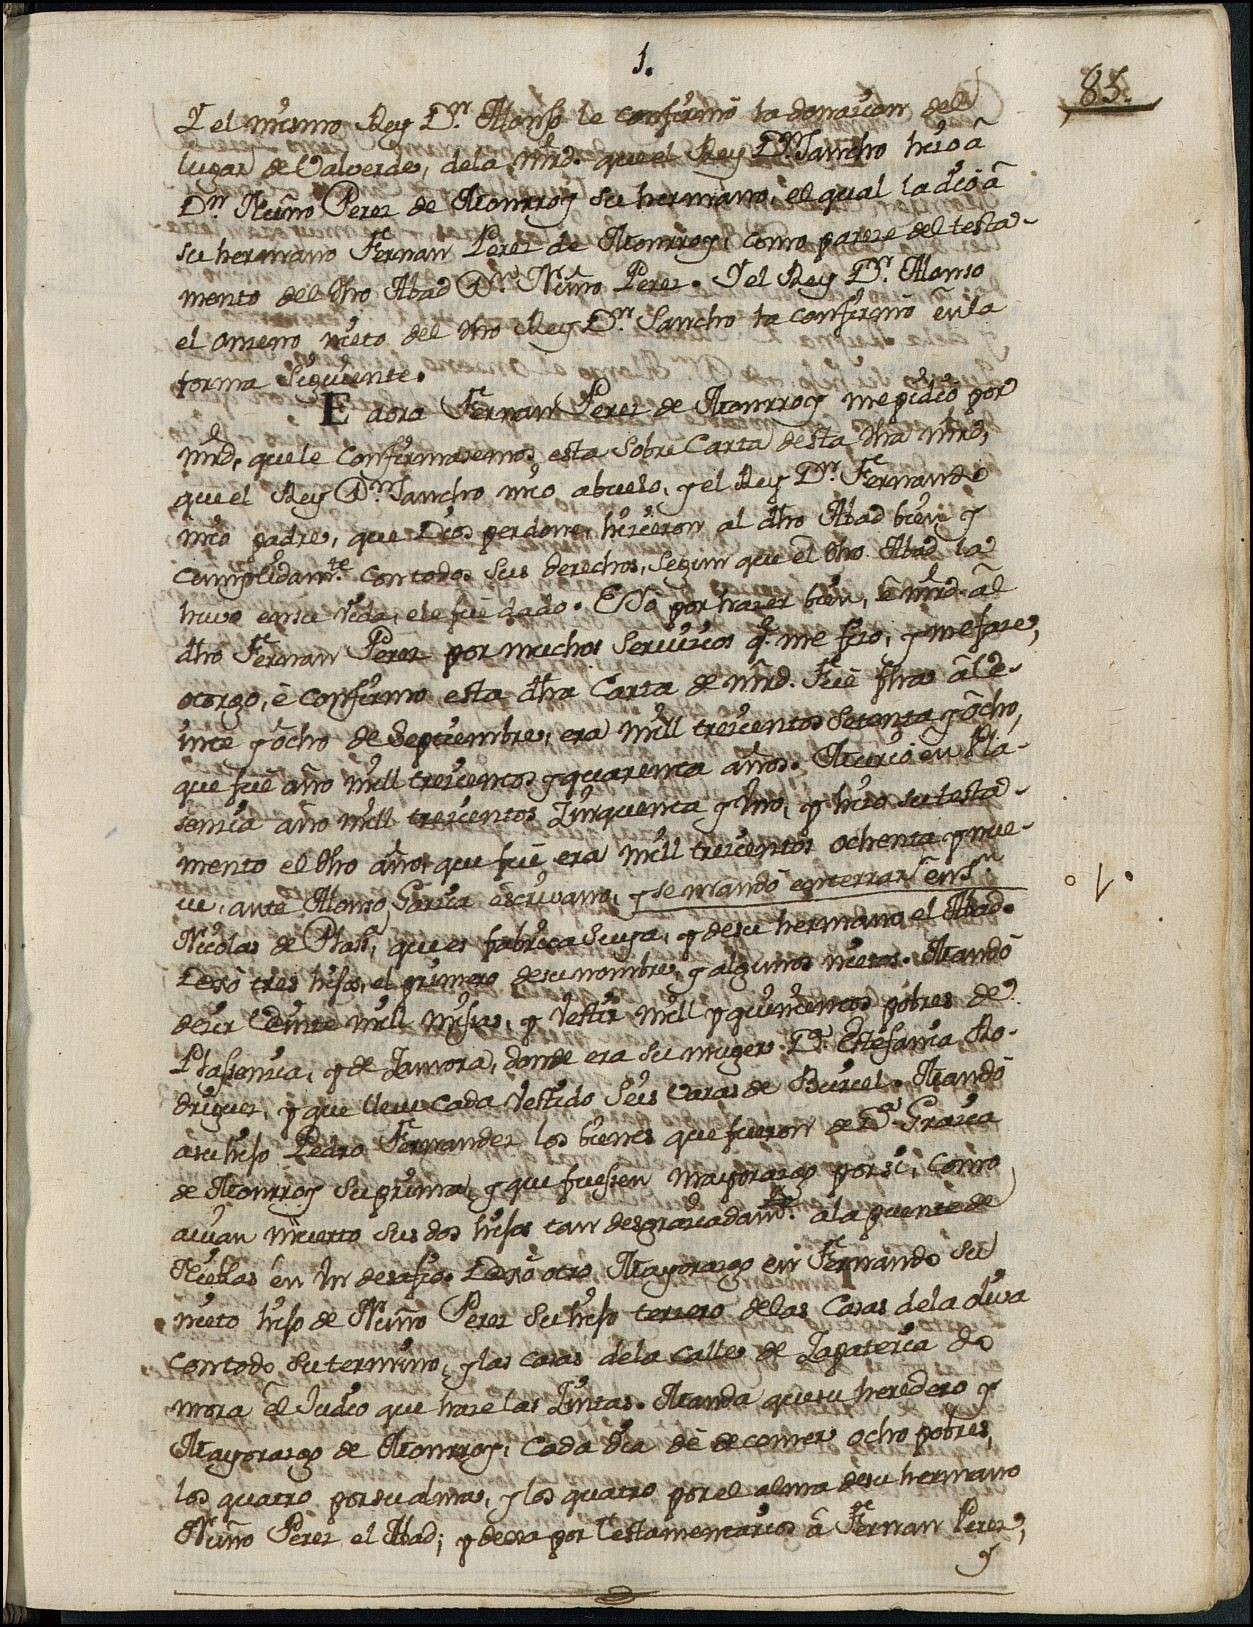 1.
85.
Y el mismo Rey Dn. Alonso le confirmó la donacion del
lugar de Valverde, dela mrd. que el Rey Dn. Sancho hizo â
Dn. Nuño Perez de Monrroy su hermano, el qual la dió â
su hermano Fernan Perez de Monrroy, como pareze del testa-
mento del dho Abad Dn. Nuño Perez. Y el Rey Dn. Alonso
el onzeno nieto del dho Rey Dn. Sancho la confirmó en la
forma siguiente.
E aora Fernan Perez de Monrroy me pidió por
mrd, que le confirmasemos esta sobre Carta desta dha mrd,
que el Rey Dn. Sancho mio abuelo, y el Rey Dn. Fernando
mio padre, que Dios perdone, hicieron al dho Abad bien y
cumplidamte. con todos sus derechos, segun que el dho Abad la
huvo en su vida, e le fué dado. E Yo por hazer bien, ê mrd. âl
dho Fernan Perez por muchos servicios q. me fizo, y me faze,
otorgo, ê confirmo esta dha Carta de mrd. Fué fha â Ve-
inte y ôcho de Septiembre, era mill trecientos setenta y ôcho,
que fué año mill trecientos y quarenta años. Murió en Pla-
sencia año mill trecientos Zinquenta y Uno, y hizo su testa-
mento el dho año, que fué era mill trecientos ochenta y nue-
ve, ante Alonso Garcia êscrivano, y se mandó enterrar en Sn
Nicolas de Plasa, que es fabrica suya, y de su hermano el Abad.
Dexó tres hijos, el primero de su nombre, y algunos nietos. Mandó
decir Veinte mill misas, y vestir mill y quinientos pobres de
Plasencia, y de Zamora, donde era su muger Da. Estefania Ro-
driguez, y que lleve cada vestido seis varas de Buriel. Mandó
a su hijo Pedro Fernandez los bienes que fueron de Da Gracia
de Monrroy su prima, y que fuesen mayorazgo por si, como
avian muerto sus dos hijos tan desgraciadamte. a la puente de
Nieblas en Un desafio. Dexó otro Mayorazgo en Fernando su
nieto hijo de Nuño Perez su hijo terzero de las Casas de la oliva
con todo su termino, y las casas de la calle de Zapateria do
mora êl Judio que haze las Zintas. Manda que su heredero y
Mayorazgo de Monrroy, Cada dia dê de comer ocho pobres,
los quatro por su alma, y los quatro por el alma de su hermano
Nuño Perez el Abad; y dexa por Testamentarios â Fernan Perez,
y